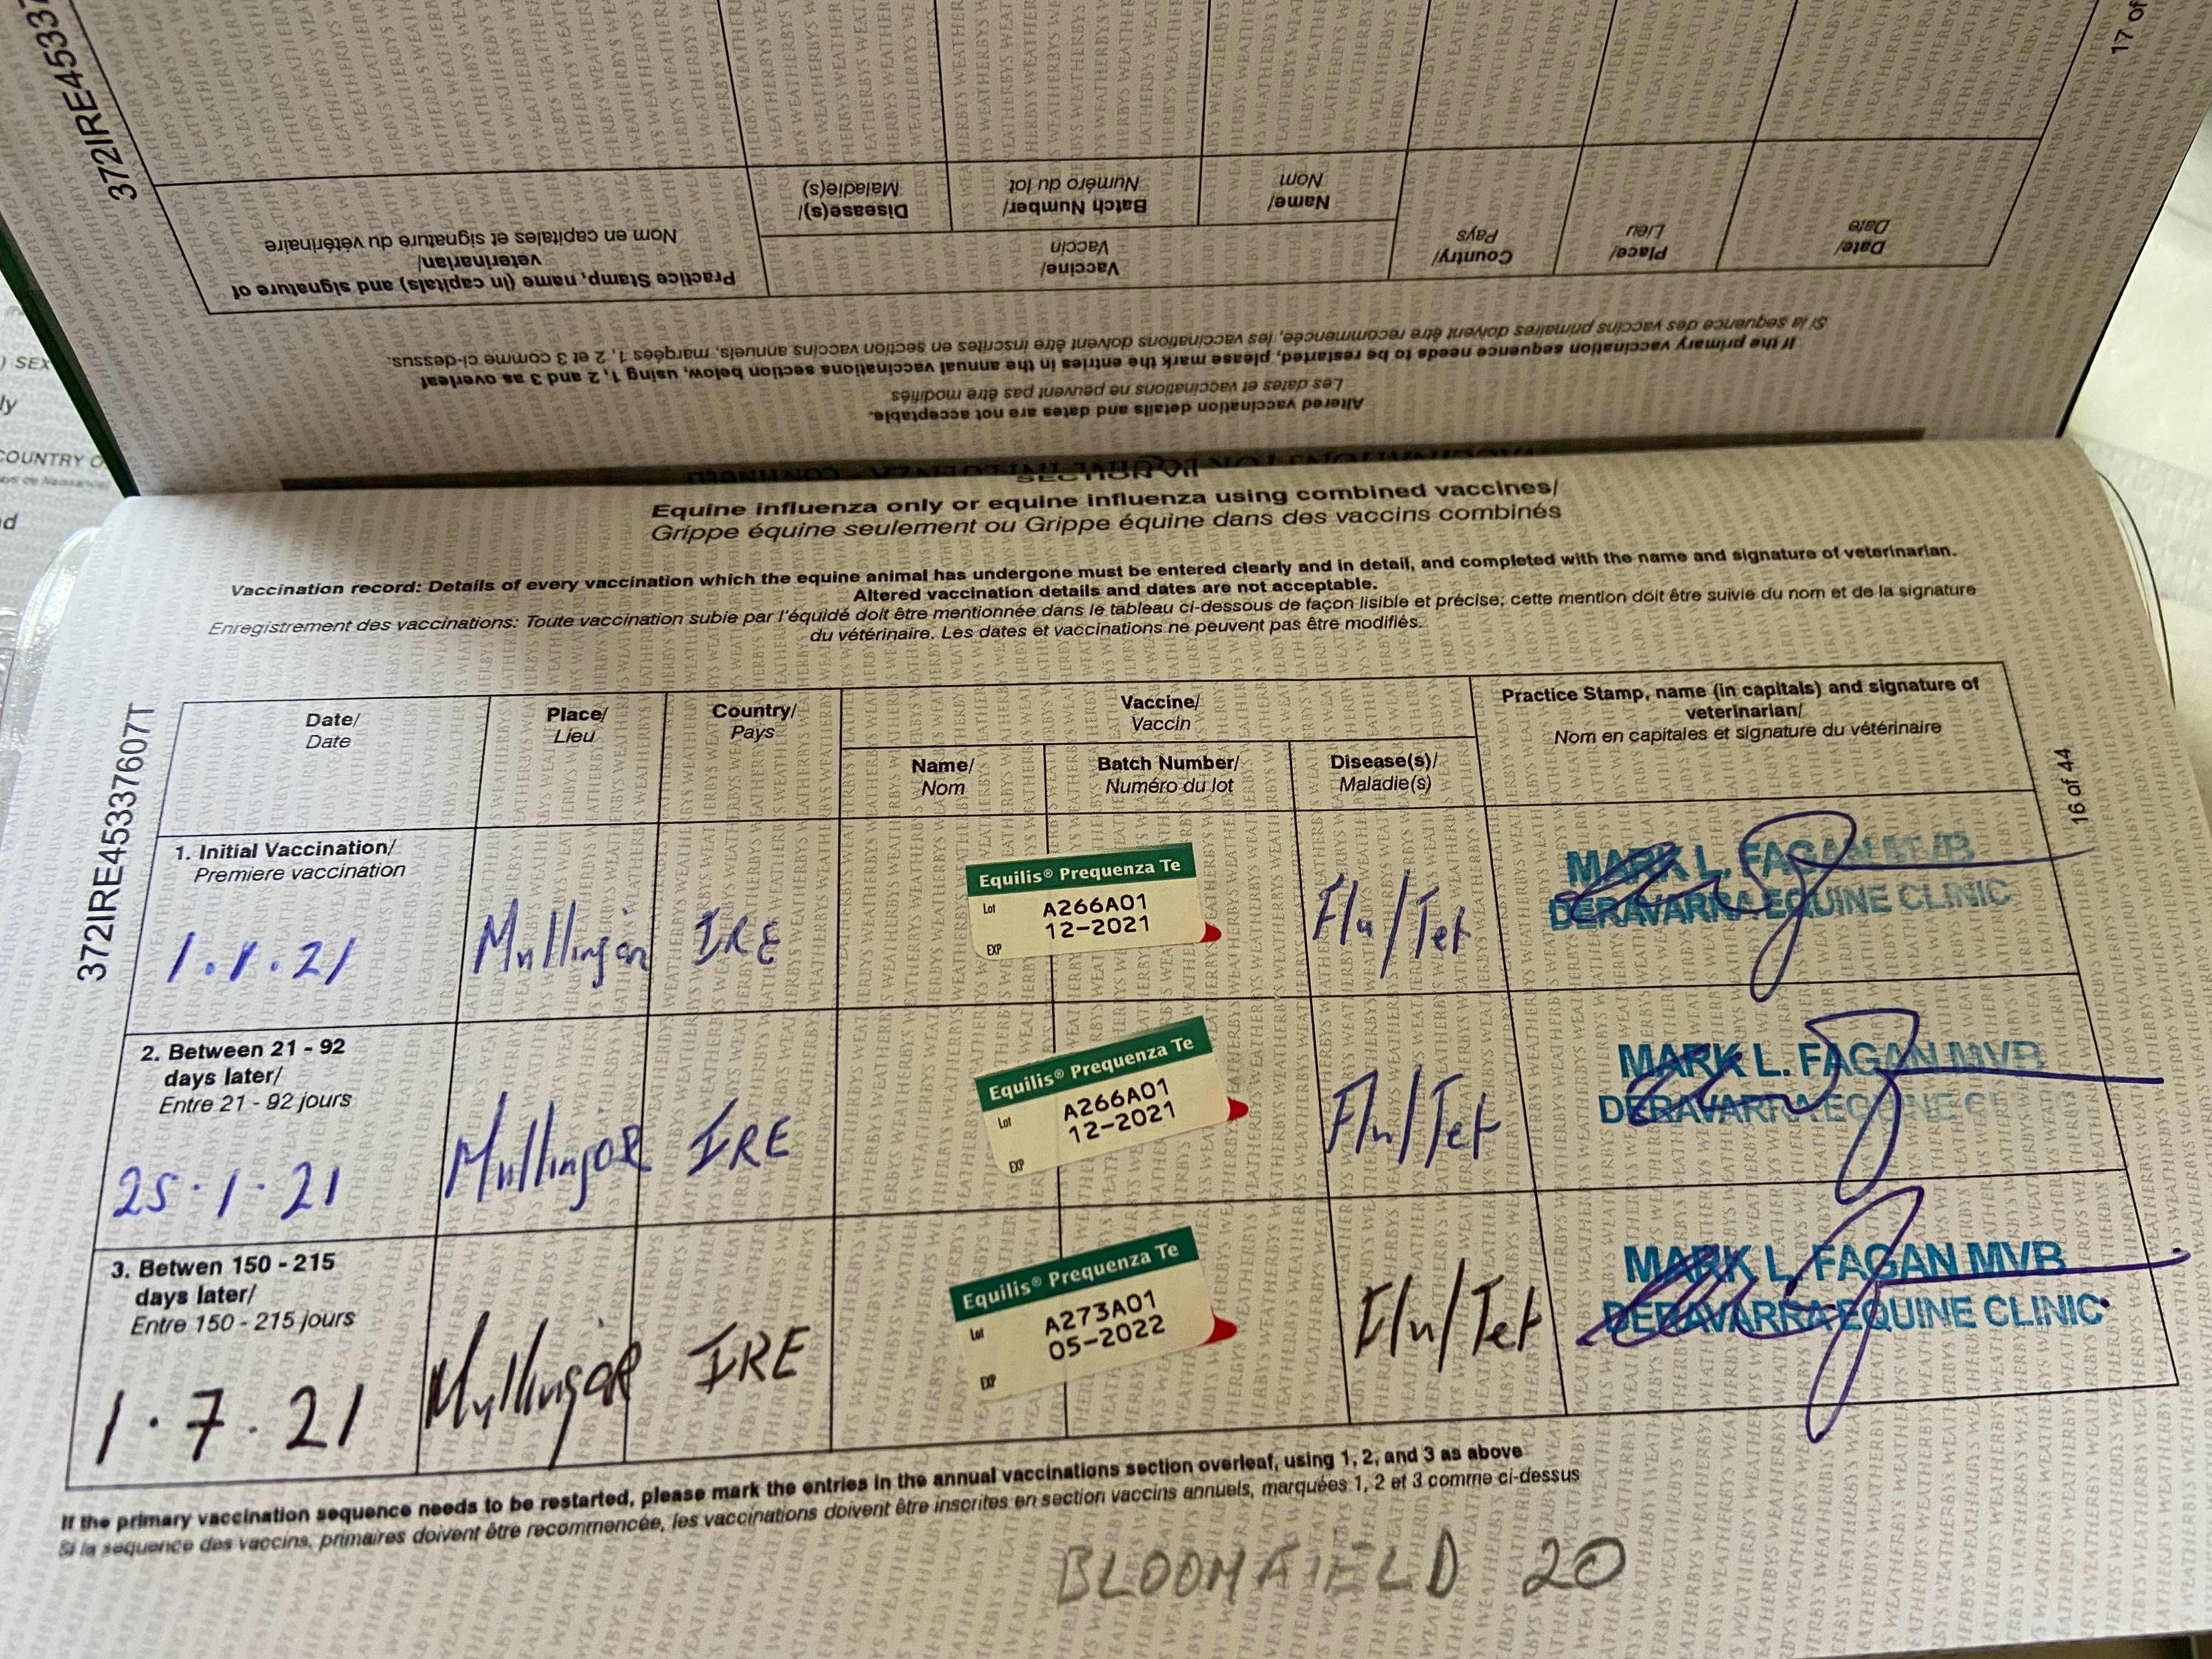 372IRE4533
17 of
Practice Stamp, name (in capitals) and signature of
veterinarian/
Nom en capitales et signature du vétérinaire
Disease(s)/
Maladie(s)
Batch Number/
Numéro du lot
Name/
Nom
Vaccine/
Vaccin
Country/
Pays
Place/
Lieu
Date/
Date
If the primary vaccination sequence needs to be restarted, please mark the entries in the annual vaccinations section below, using 1, 2 and 3 as overleaf
Si la sequence des vaccins primaires doivent être recommencée, les vaccinations doivent être inscrites en section vaccins annuels, marqées 1, 2 et 3 comme ci-dessus.
Altered vaccination details and dates are not acceptable.
Les dates et vaccinations ne peuvent pas être modifiés
) SEX
ly
COUNTRY O
d
SECTION VII
Equine influenza only or equine influenza using combined vaccines/
Grippe équine seulement ou Grippe équine dans des vaccins combinés
Vaccination record: Details of every vaccination which the equine animal has undergone must be entered clearly and in detail, and completed with the name and signature of veterinarian.
Altered vaccination details and dates are not acceptable.
Enregistrement des vaccinations: Toute vaccination subie par l'équidé doit être mentionnée dans le tableau ci-dessous de façon lisible et précise; cette mention doit être suivie du nom et de la signature
du vétérinaire. Les dates et vaccinations ne peuvent pas être modifiés.
372IRE45337607T
16 of 44
Date/
Date
Place/
Lieu
Country/
Pays
Vaccine/
Vaccin
Name/
Nom
Batch Number/
Numéro du lot
Disease(s)/
Maladie(s)
Practice Stamp, name (in capitals) and signature of
veterinarian/
Nom en capitales et signature du vétérinaire
1. Initial Vaccination/
Premiere vaccination
1.1.21
Mullingar
IRE
Equilis® Prequenza Te
Lot A266A01
12-2021
EXP
Flu/Tet
MARK L. FAGAN MVB
DERAVARRA EQUINE CLINIC
2. Between 21 - 92
days later/
Entre 21 - 92 jours
25.1.21
MullingaR
IRE
Equilis® Prequenza Te
Lot A266A01
12-2021
EXP
Flu/Tet
MARK L. FAGAN MVB
DERAVARRA EQUINE CL
3. Betwen 150 - 215
days later/
Entre 150 - 215 jours
1.7.21
MullingaR
IRE
Equilis® Prequenza Te
Lot A273A01
05-2022
EXP
Flu/Tet
MARK L. FAGAN MVB
DERAVARRA EQUINE CLINIC
If the primary vaccination sequence needs to be restarted, please mark the entries in the annual vaccinations section overleaf, using 1, 2, and 3 as above
Si la sequence des vaccins, primaires doivent être recommencée, les vaccinations doivent être inscrites en section vaccins annuels, marquées 1, 2 et 3 comme ci-dessus
BLOOMFIELD 20